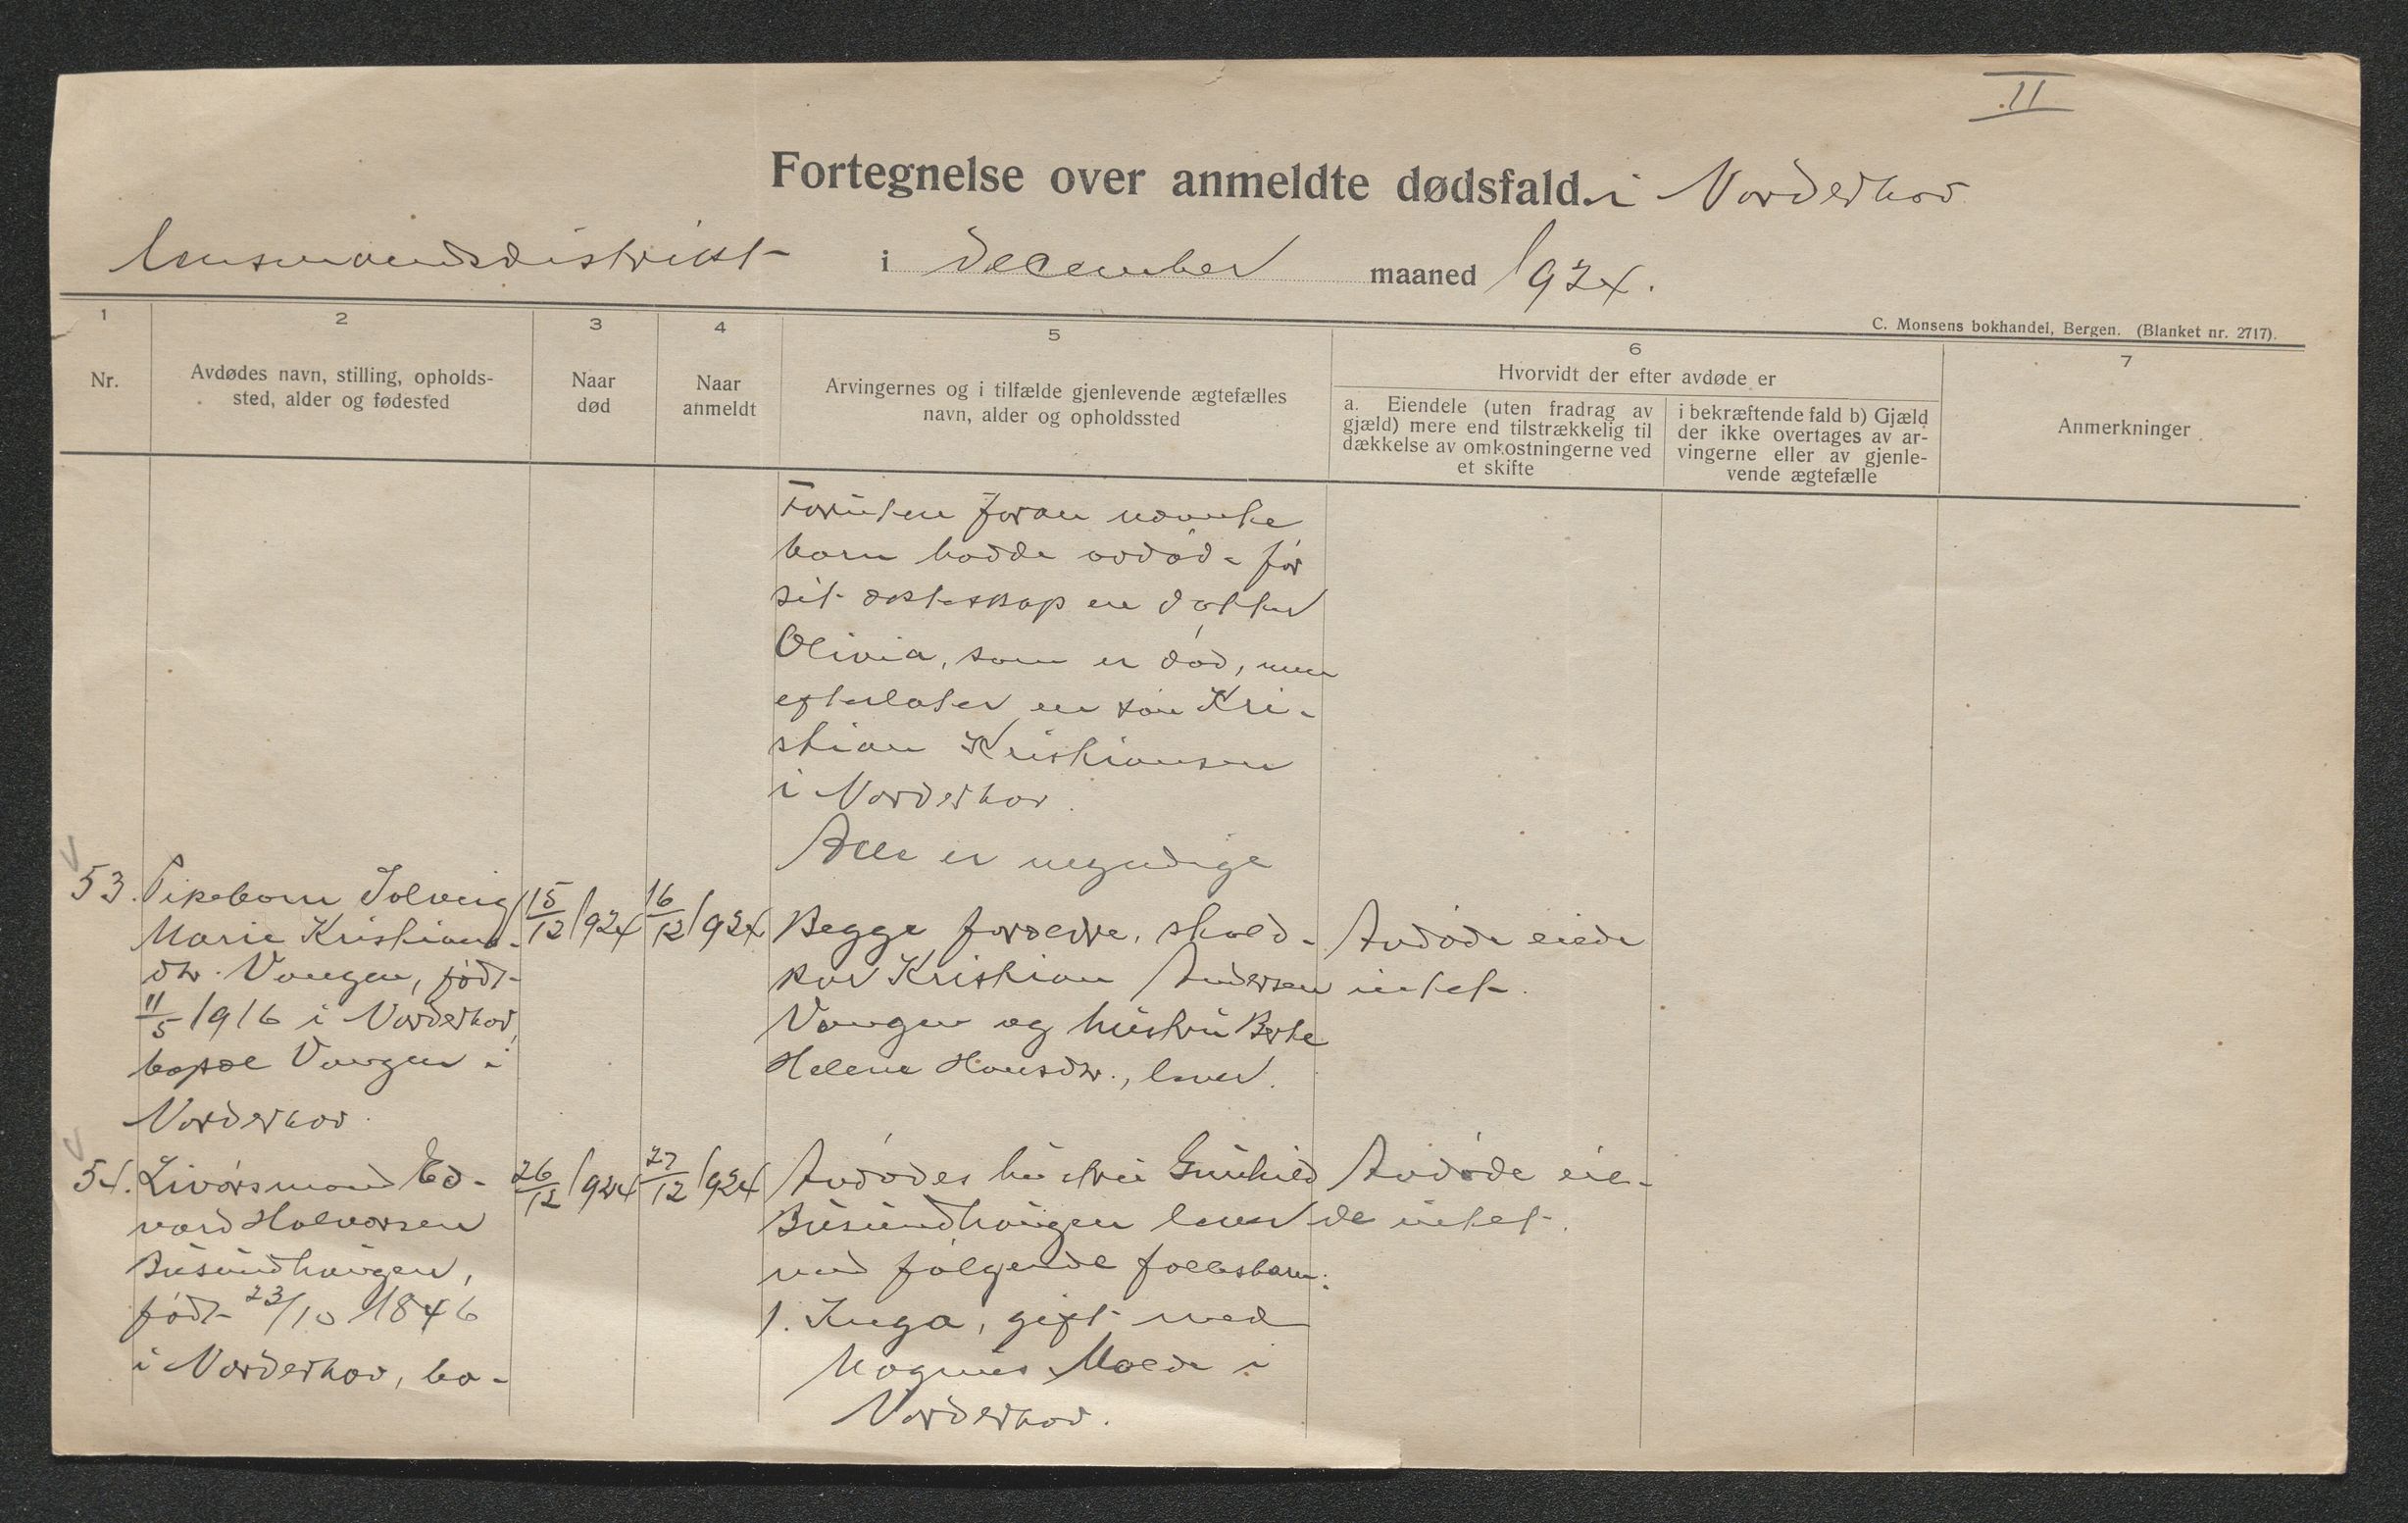 II
Fortegnelse over anmeldte dødsfald. i Norderhov
lensmandsdistrikt i december maaned 1924.
C. Monsens bokhandel, Bergen. (Blanket nr. 2717).
1
2
3
4
5
6
7
Nr.
Avdødes navn, stilling, opholds-
sted, alder og fødested
Naar
død
Naar
anmeldt
Arvingernes og i tilfælde gjenlevende ægtefælles
navn, alder og opholdssted
Hvorvidt der efter avdøde er
a. Eiendele (uten fradrag av
gjæld) mere end tilstrækkelig til
dækkelse av omkostningerne ved
et skifte
i bekræftende fald b) Gjæld
der ikke overtages av ar-
vingerne eller av gjenle-
vende ægtefælle
Anmerkninger
Foruten foran nævnte
barn hadde avdød- før
sit ekteskap en datter
Olivia, som er død, men
efterlater en søn Kri-
stian Kristiansen
i Norderhov.
Alle er myndige
53. Pikebarn Solveig
Marie Kristians-
dtr. Vangen, født
11/5 1916 i Norderhov,
bopæl Vangen i
Norderhov.
15/12 1924
16/12 1924
Begge forældre,
Kristian Andersen
Vangen og hustru Berte
Helene Hansdtr., lever.
Avdøde eiede
intet.
54. Livørsmand Ed-
vard Halvorsen
Busundhaugen,
født 23/10 1846
i Norderhov, bo-
26/12 1924
27/12 1924
Avdødes hustru Gunhild
Busundhaugen lever
med følgende fællesbarn:
1. Inga, gift med
Magnus Moede i
Norderhov.
Avdøde eie-
de intet.